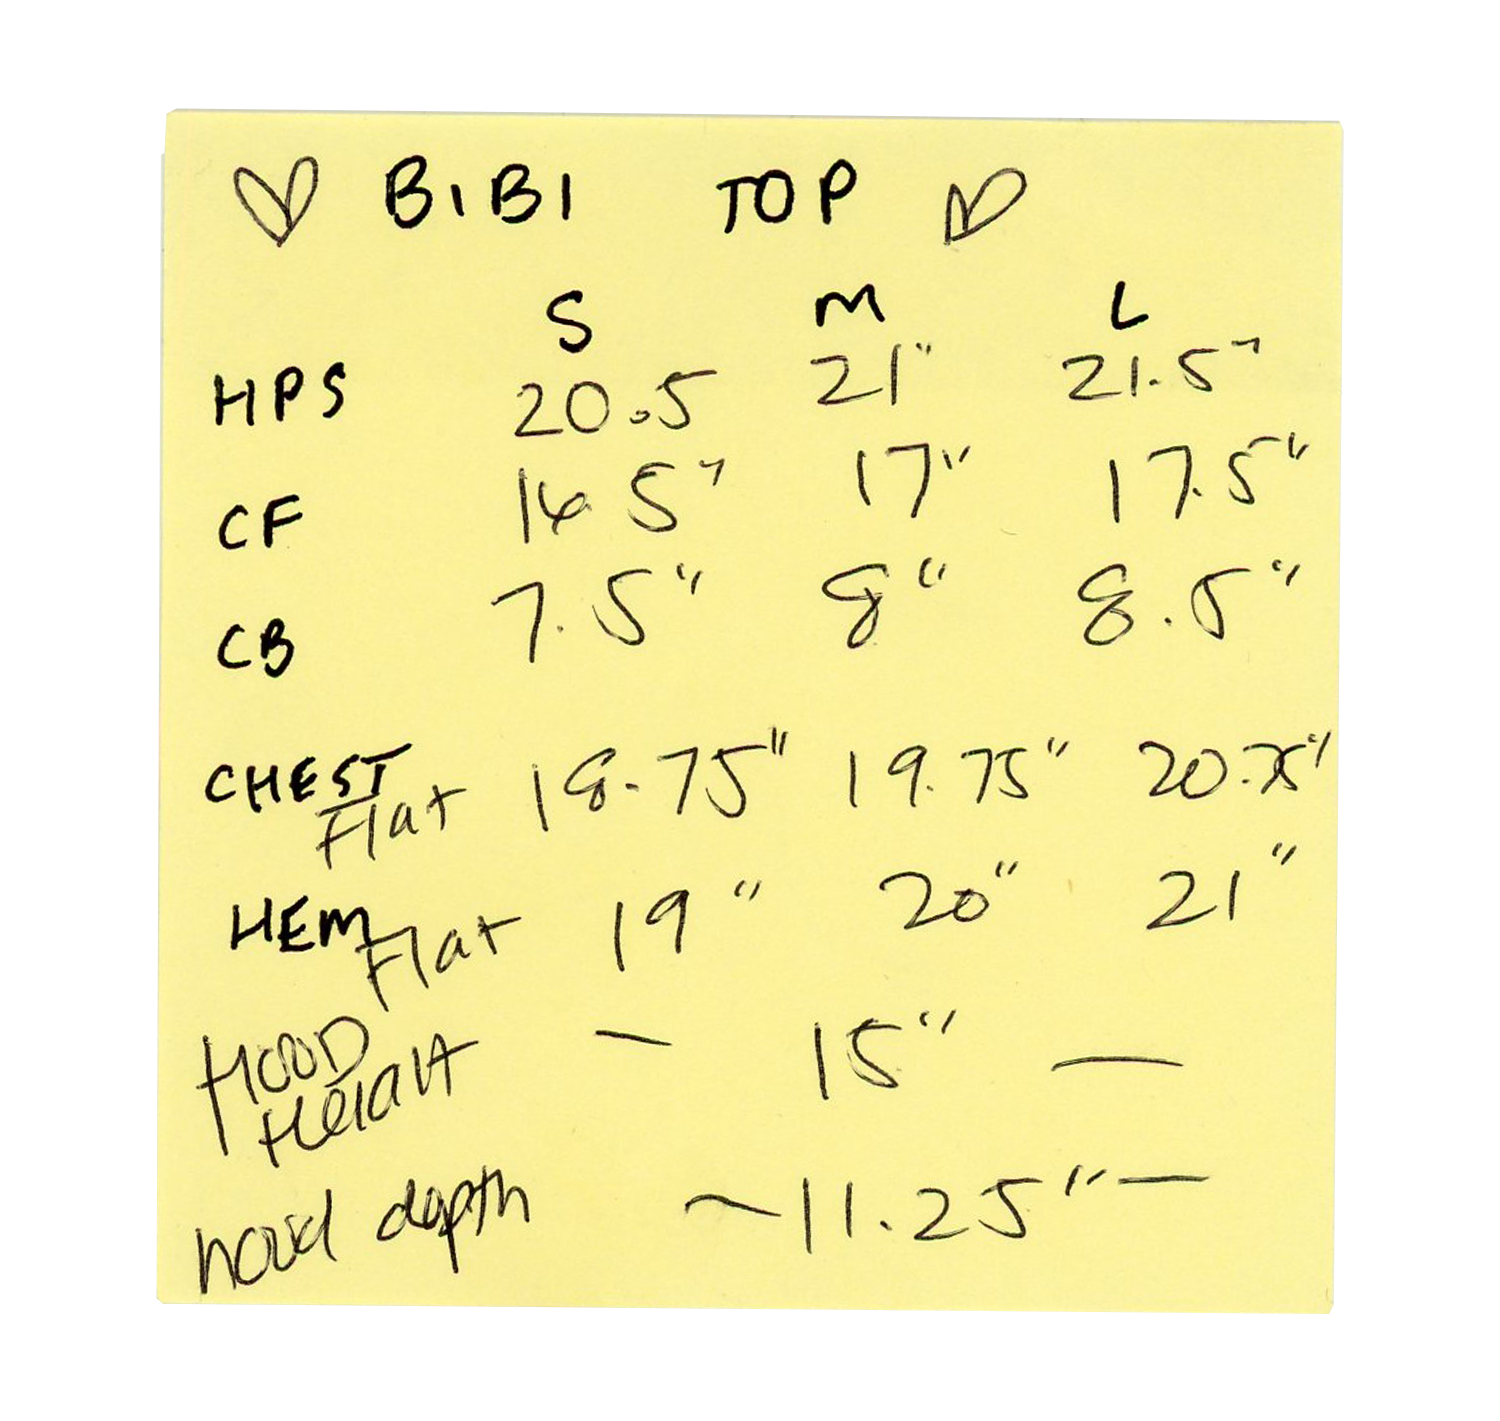 ♡ BIBI TOP ♡
S M L
HPS 20.5 21" 21.5"
CF 16.5" 17" 17.5"
CB 7.5" 8" 8.5"
CHEST Flat 18.75" 19.75" 20.75"
HEM Flat 19" 20" 21"
HOOD Height — 15" —
hood depth — 11.25" —